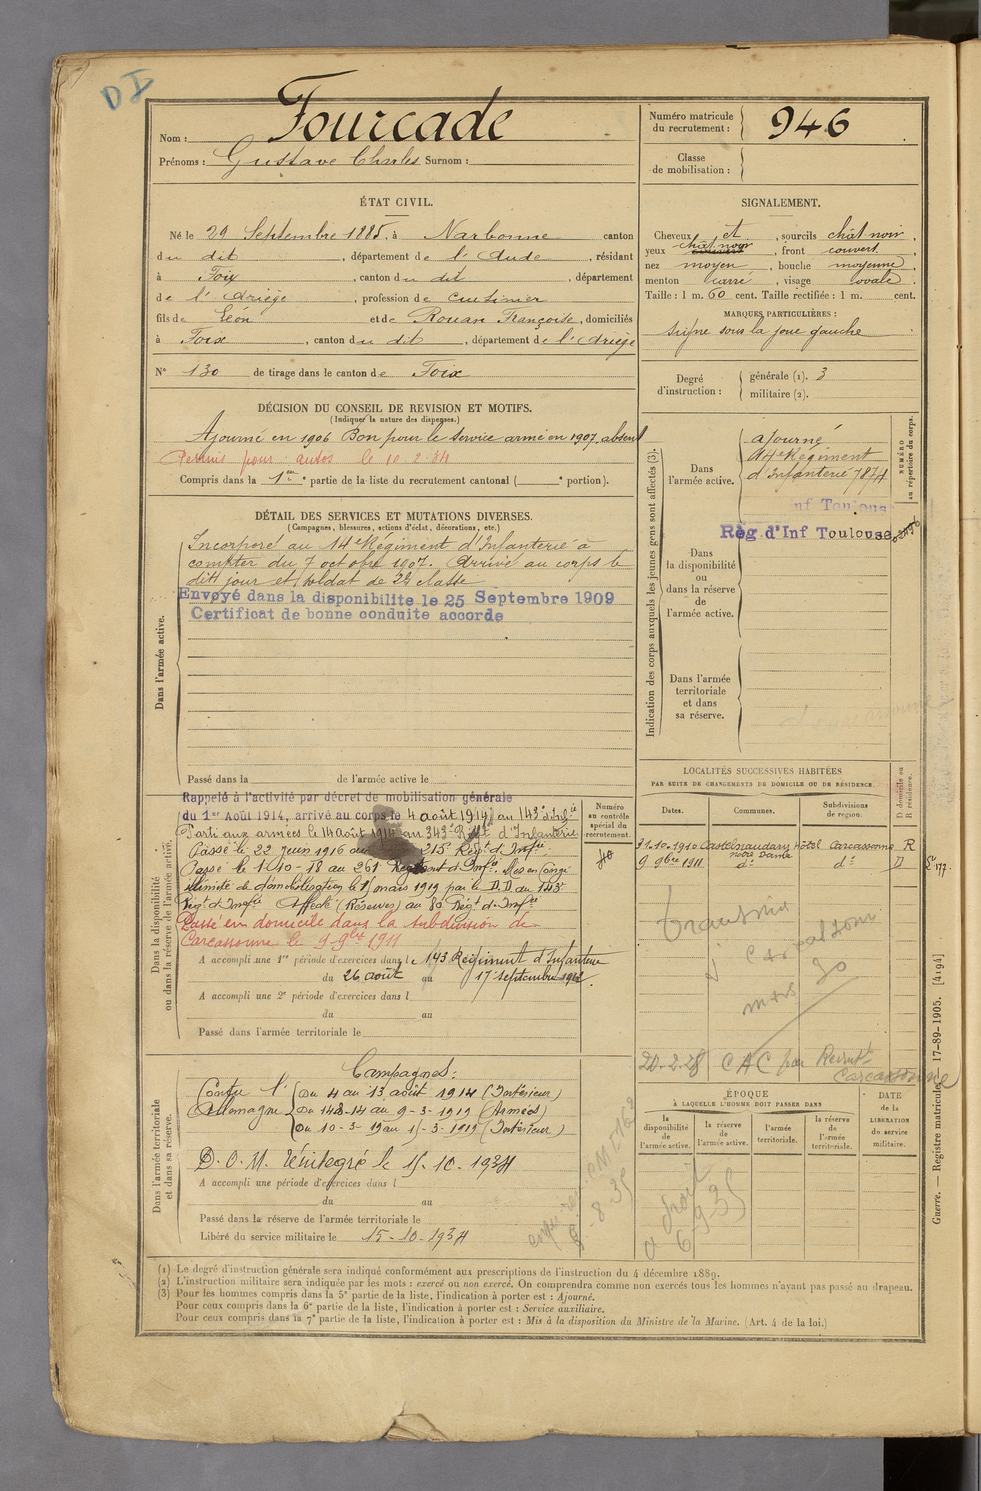 D I
Nom : Fourcade
Prénoms : Gustave Charles Surnom :
Numéro matricule du recrutement : 946
Classe de mobilisation :
ÉTAT CIVIL.
Né le 29 Septembre 1885, à Narbonne canton
du dit, département de l'Aude, résidant
à Foix, canton du dit, département
de l'Ariège, profession de cuisinier
fils de Léon et de Rouan Françoise, domiciliés
à Foix, canton du dit, département de l'Ariège
N° 130 de tirage dans le canton de Foix
SIGNALEMENT.
Cheveux et, sourcils chât noir,
yeux chât noir, front couvert,
nez moyen, bouche moyenne,
menton carré, visage ovale.
Taille : 1 m. 60 cent. Taille rectifiée : 1 m. cent.
MARQUES PARTICULIÈRES :
signe sous la joue gauche
Degré d'instruction : générale (1). 3
militaire (2).
DÉCISION DU CONSEIL DE REVISION ET MOTIFS.
(Indiquer la nature des dispenses.)
Ajourné en 1906 Bon pour le service armé en 1907, absent
Permis pour autos le 10-2-34
Compris dans la 1ère partie de la liste du recrutement cantonal ( e portion).
DÉTAIL DES SERVICES ET MUTATIONS DIVERSES.
(Campagnes, blessures, actions d'éclat, décorations, etc.)
Dans l'armée active.
Incorporé au 14e Régiment d'Infanterie à
compter du 7 octobre 1907. Arrivé au corps le
dit jour et soldat de 2e classe
Envoyé dans la disponibilite le 25 Septembre 1909
Certificat de bonne conduite accorde
Passé dans la de l'armée active le
Indication des corps auxquels les jeunes gens sont affectés (3).
NUMÉRO au répertoire du corps.
Dans l'armée active.
ajourné
14e Régiment
d'Infanterie 7874
Inf Toulouse
Règ d'Inf Toulouse
Dans la disponibilité ou dans la réserve de l'armée active.
Dans l'armée territoriale et dans sa réserve.
Dans la disponibilité ou dans la réserve de l'armée active.
Rappelé à l'activité par décret de mobilisation générale
du 1er Août 1914, arrivé au corps le 4 août 1914 au 143e d'Infie
Parti aux armées le 14 août 1914 au 343e Régt d'Infanterie
Passé le 22 juin 1916 au 215e Régt d'Infie
Passé le 1-10-18 au 261 Régiment d'Infie. Mis en congé
illimité de démobilisation le 15 mars 1919 par le D.D. du 143e
Régt d'Infie Affecté (Réserves) au 80 Régt d'Infie
Passé en domicile dans la subdivision de
Carcassonne le 9-9bre 1911
A accompli une 1re période d'exercices dans le 143 Régiment d'Infanterie
du 26 août au 17 septembre 1912.
A accompli une 2e période d'exercices dans l
du au
Passé dans l'armée territoriale le
Numéro au contrôle spécial du recrutement.
LOCALITÉS SUCCESSIVES HABITÉES
PAR SUITE DE CHANGEMENTS DE DOMICILE OU DE RÉSIDENCE.
Dates. Communes. Subdivisions de région. D. domicile ou R. résidence.
31-10-1910 Castelnaudary Hôtel notre Dame Carcassonne R
9 9bre 1911 do do D
20-2-28 CAC par Recrutt Carcassonne
Dans l'armée territoriale et dans sa réserve.
Campagnes :
Contre l'Allemagne
Du 4 au 13 août 1914 (Intérieur)
Du 14-8-14 au 9-3-1919 (Armées)
Du 10-3-19 au 15-3-1919 (Intérieur)
D.O.M. réintégré le 15-10-1934
A accompli une période d'exercices dans l
du au
Passé dans la réserve de l'armée territoriale le
Libéré du service militaire le 15-10-1934
ÉPOQUE
À LAQUELLE L'HOMME DOIT PASSER DANS
la disponibilité de l'armée active.
la réserve de l'armée active.
l'armée territoriale.
la réserve de l'armée territoriale.
DATE de la LIBÉRATION du service militaire.
6-9-35
(1) Le degré d'instruction générale sera indiqué conformément aux prescriptions de l'instruction du 4 décembre 1889.
(2) L'instruction militaire sera indiquée par les mots : exercé ou non exercé. On comprendra comme non exercés tous les hommes n'ayant pas passé au drapeau.
(3) Pour les hommes compris dans la 5e partie de la liste, l'indication à porter est : Ajourné.
Pour ceux compris dans la 6e partie de la liste, l'indication à porter est : Service auxiliaire.
Pour ceux compris dans la 7e partie de la liste, l'indication à porter est : Mis à la disposition du Ministre de la Marine. (Art. 4 de la loi.)
Guerre. — Registre matricule. 17-89-1905. [4194]